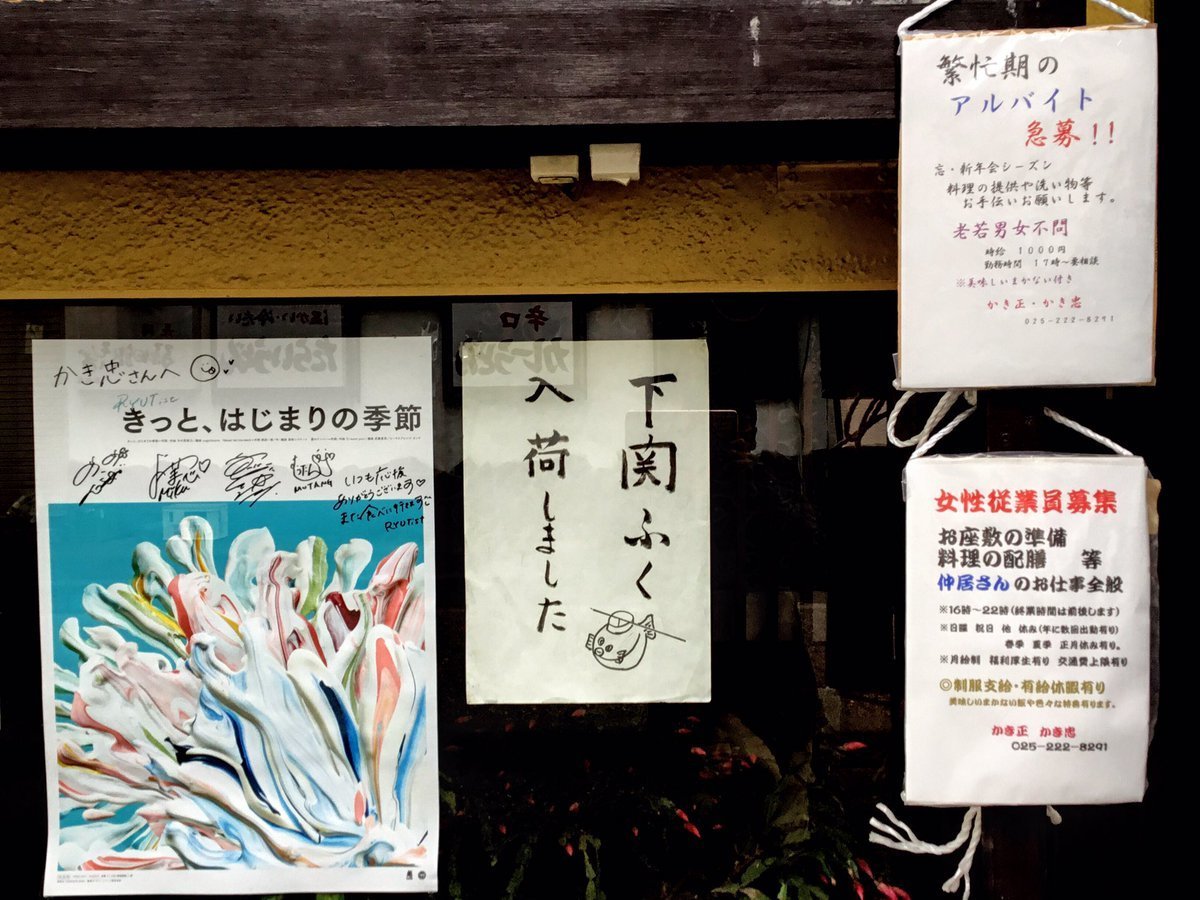 かき忠さんへ
RYUTist
きっと、はじまりの季節
MIKU
MUTANG
いつも応援
ありがとうございます♡
また食べに行きます
RYUTist
辛口
カレーうどん
下関ふく
入荷しました
繁忙期の
アルバイト
急募!!
忘・新年会シーズン
料理の提供や洗い物等
お手伝いお願いします。
老若男女不問
時給 1000円
勤務時間 17時～要相談
※美味しいまかない付き
かき正・かき忠
025-222-8291
女性従業員募集
お座敷の準備
料理の配膳 等
仲居さんのお仕事全般
※16時～22時(終業時間は前後します)
※日曜 祝日 他 休み(年に数回出勤有り)
春季 夏季 正月休み有り。
※月給制 福利厚生有り 交通費上限有り
◎制服支給・有給休暇有り
美味しいまかない飯や色々な特典有ります。
かき正 かき忠
025-222-8291